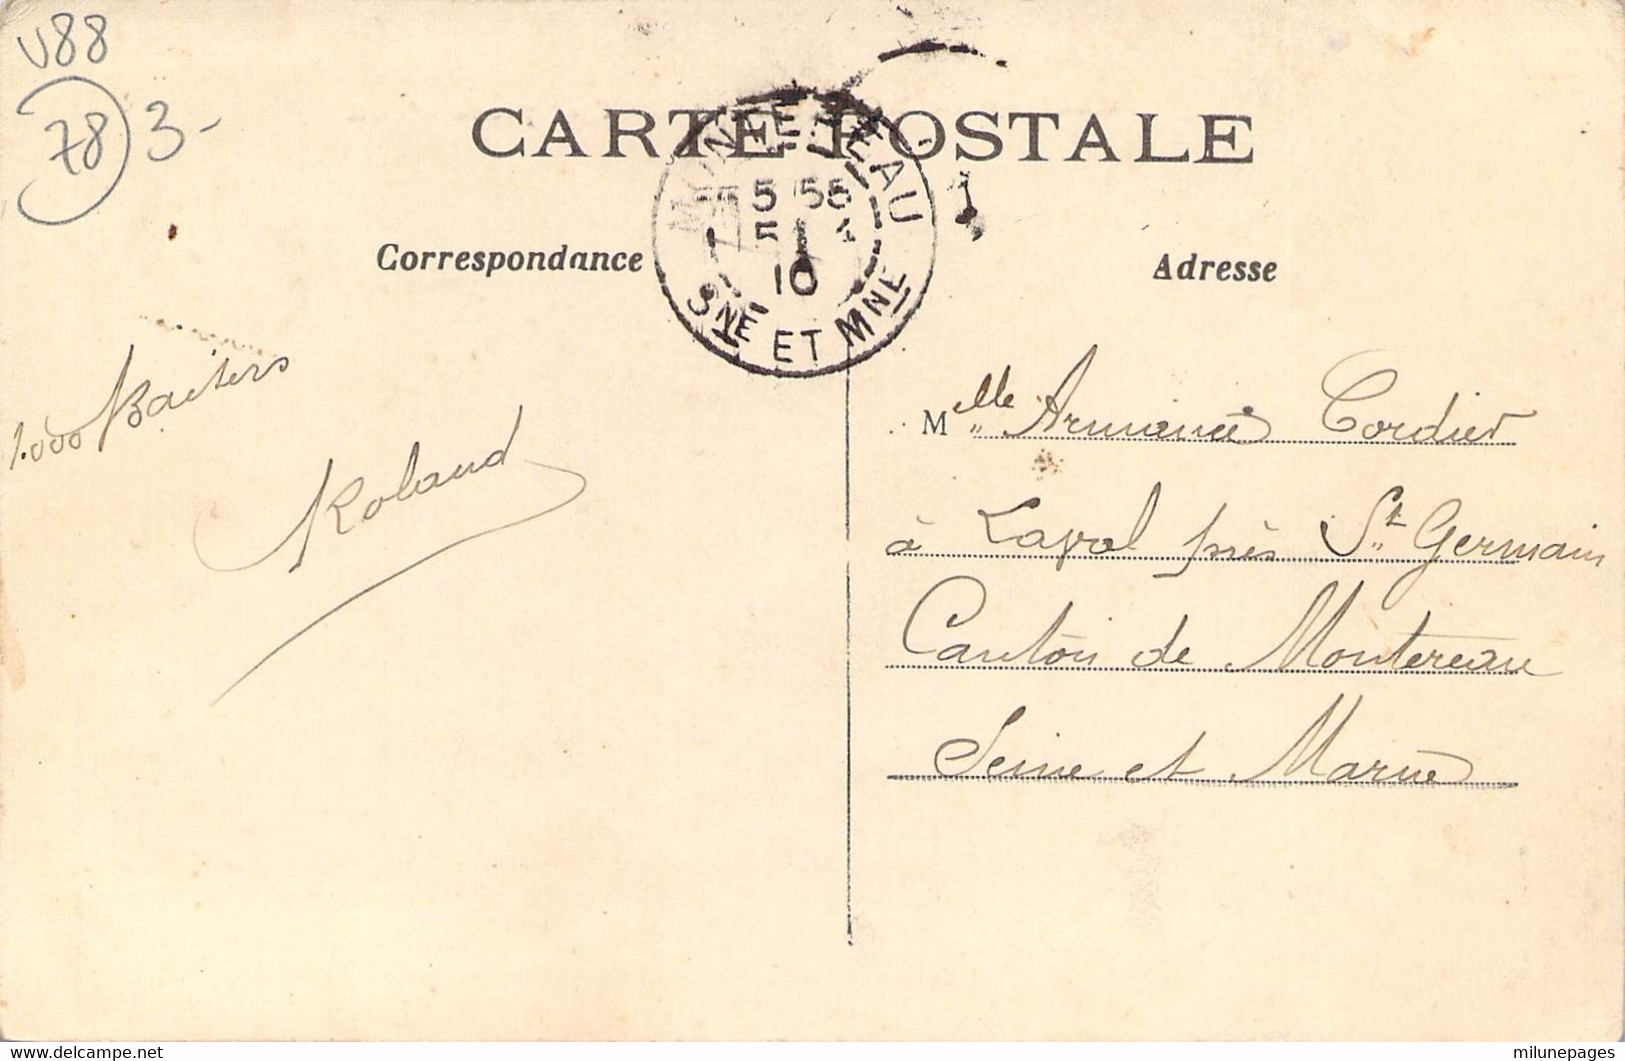 V88
78 3-
CARTE POSTALE
MONTEREAU
5 55
10
SNE ET MNE
Correspondance
Adresse
1.000 Baisers
Roland
Melle Armance Cordier
à Laval près St Germain
Canton de Montereau
Seine et Marne
delcampe.net
milunepages